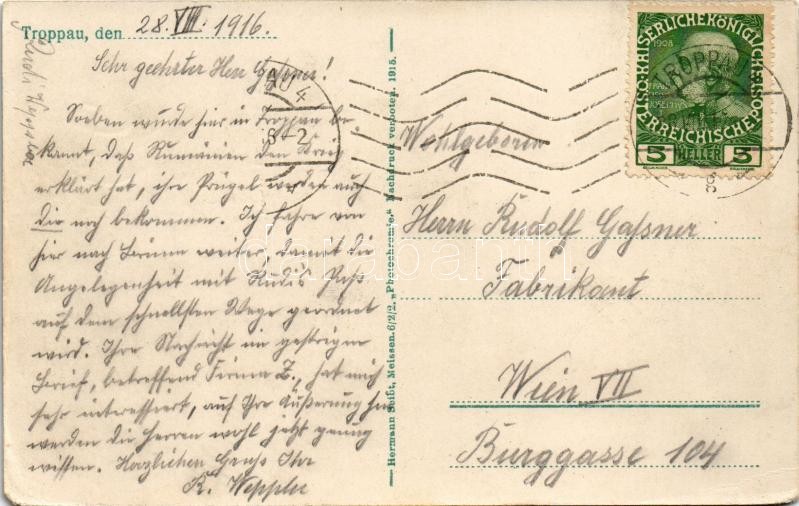 Troppau, den 28. VIII. 1916.
Sehr geehrter Herr Gaßner!
Soeben wurde hier in Troppau be-
kannt, daß Rumänien den Krieg
erklärt hat, ihre Prügel werden auch
die noch bekommen. Ich fahre von
hier nach Brünn weiter, damit die
Angelegenheit mit Rudis Paß
auf dem schnellsten Wege geordnet
wird. Ihre Nachricht im gestrigen
Brief, betreffend Firma Z., hat mich
sehr interessiert, auf Ihre Äußerung
werden die Herren wohl jetzt genug
wissen. Herzlichen Gruß Ihr
R.
Hermann Seibt, Meissen. 6/2/2. „Photochromie." Nachdruck verboten. 1915.
KAISERLICHE KÖNIGLICHE ÖSTERREICHISCHE POST
1908
5 HELLER 5
TROPPAU
8-2
Wohlgeboren
Herrn Rudolf Gaßner
Fabrikant
Wien VII
Burggasse 104
darabanth